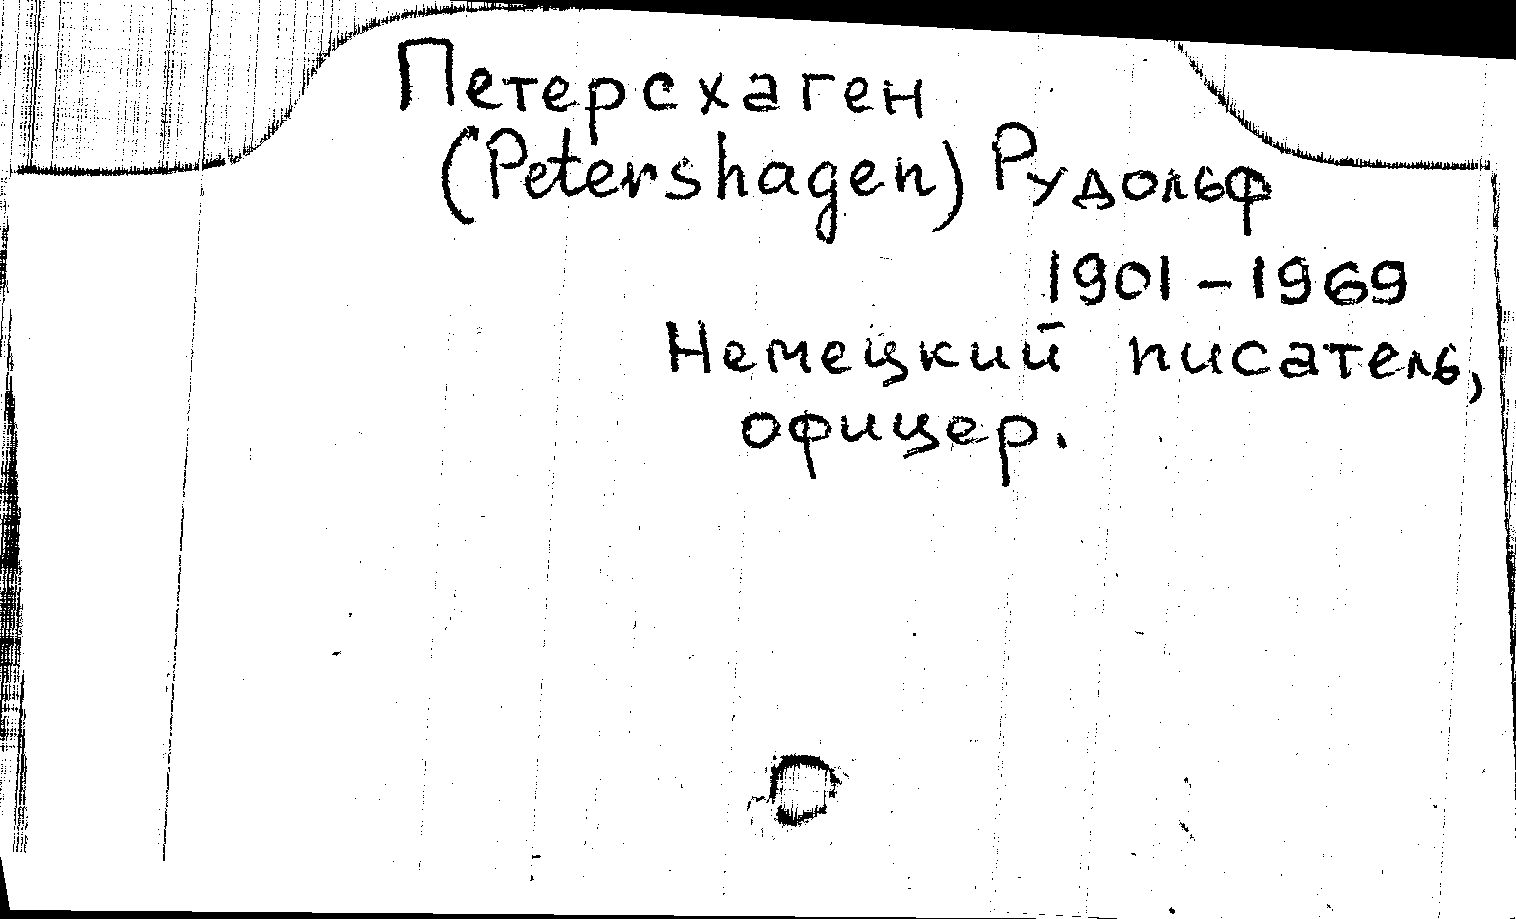 Петерсхаген
(Petershagen) Рудольф
1901-1969
Немецкий писатель,
офицер.